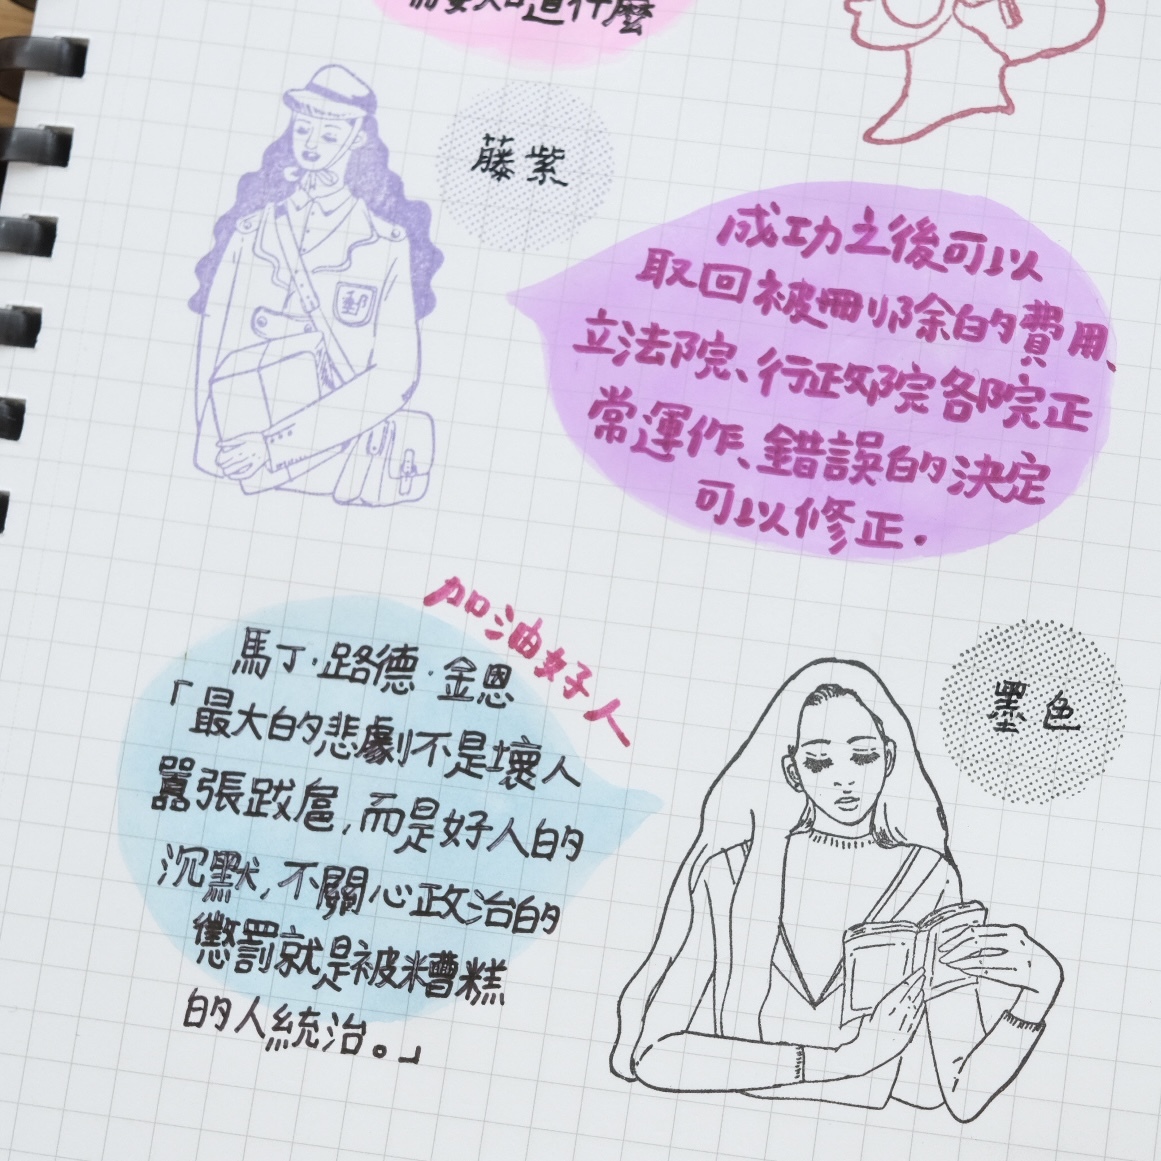 需要知道什麼
藤紫
郵
成功之後可以
取回被刪除的費用、
立法院、行政院各院正
常運作、錯誤的決定
可以修正.
加油好人
馬丁·路德·金恩
「最大的悲劇不是壞人
囂張跋扈,而是好人的
沉默,不關心政治的
懲罰就是被糟糕
的人統治。」
墨色